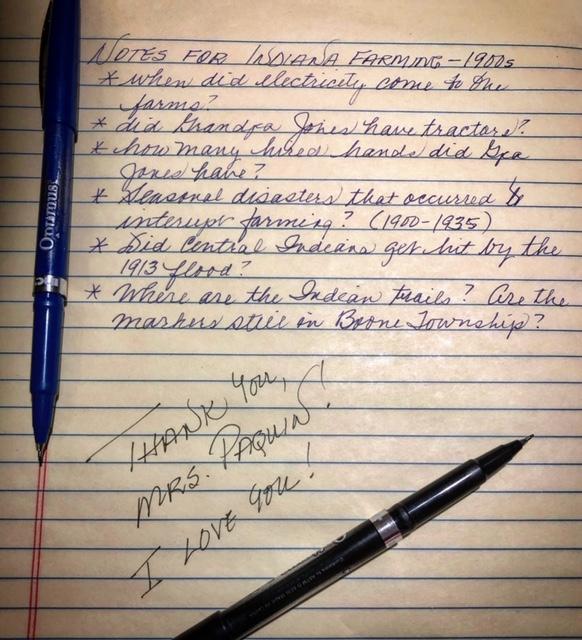 NOTES FOR INDIANA FARMING - 1900s
* when did electricity come to the
farms?
* did Grandpa Jones have tractors?
* how many hired hands did Gpa
Jones have?
* Seasonal disasters that occurred &
interupt farming? (1900-1935)
* Did Central Indiana get hit by the
1913 flood?
* Where are the Indian trails? Are the
markers still in Boone Township?
THANK YOU,
MRS. PAQUIN!
I LOVE YOU!
Optimus